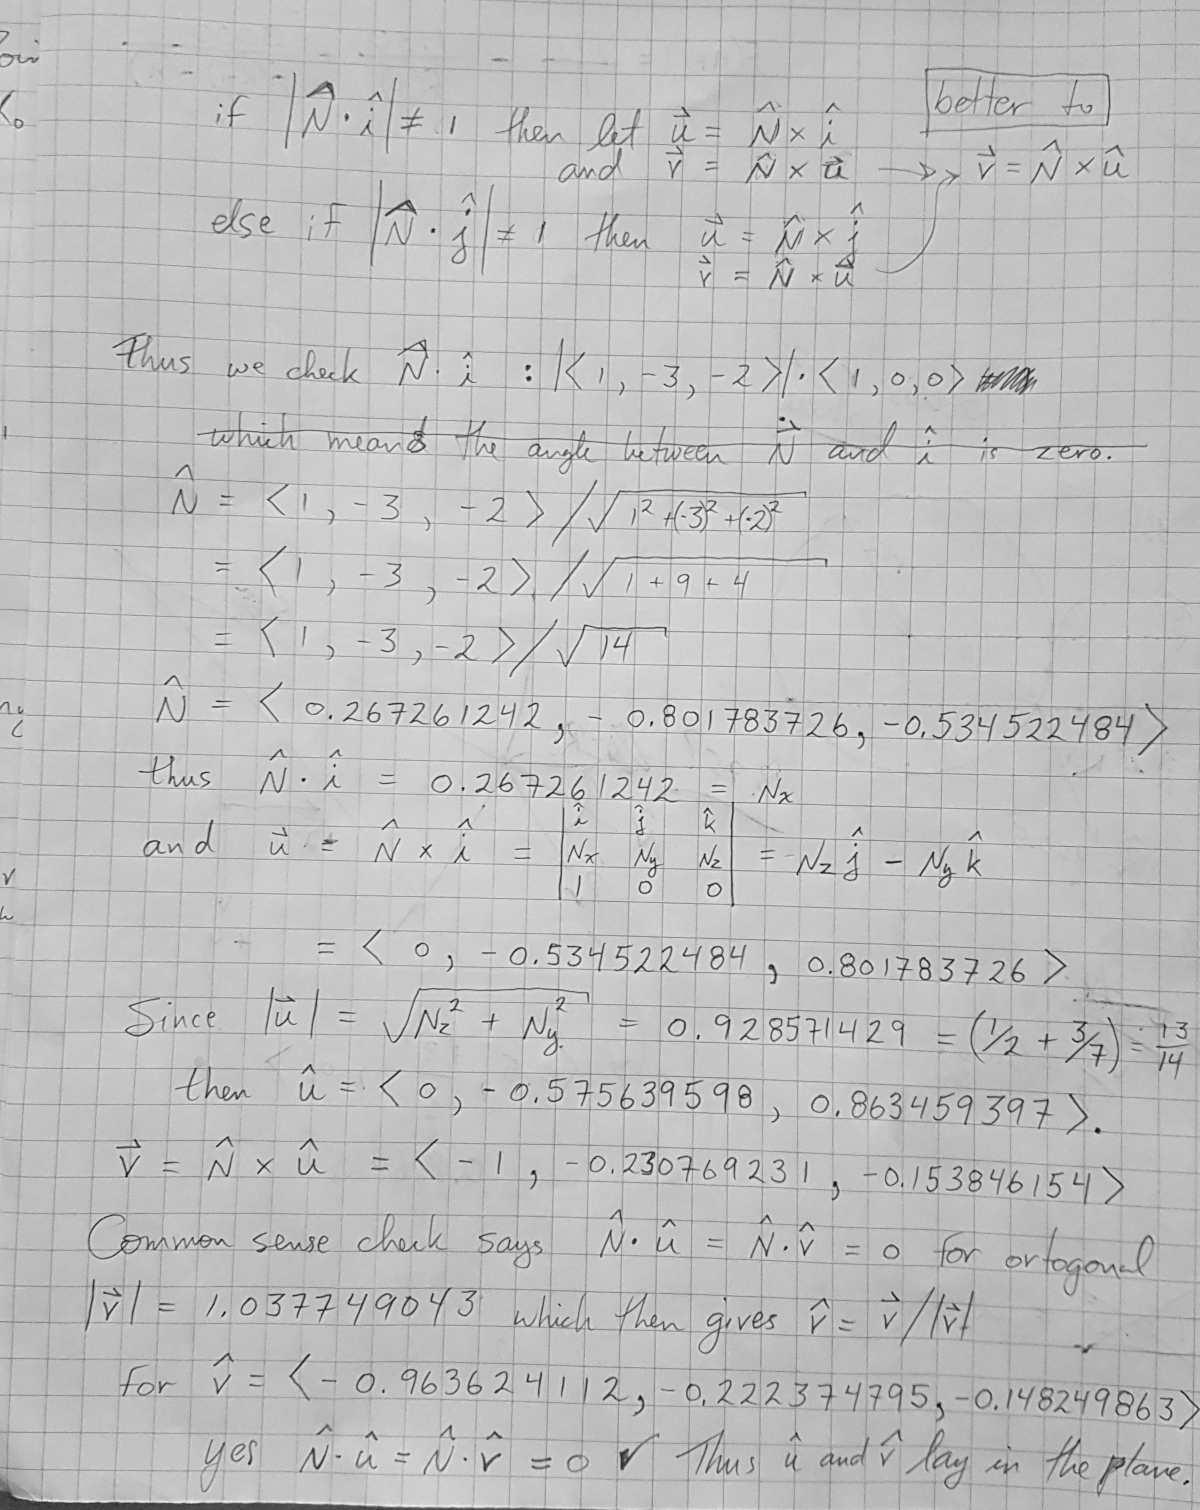 better to
if |N̂ · î| ≠ 1 then let u⃗ = N̂ × î
and v⃗ = N̂ × u⃗ →> v⃗ = N̂ × û
else if |N̂ · ĵ| ≠ 1 then u⃗ = N̂ × ĵ
v⃗ = N̂ × u⃗
Thus we check N̂ · î : |< 1, -3, -2 >| · < 1, 0, 0 >
which means the angle between N⃗ and î is zero.
N̂ = < 1, -3, -2 > / √(1² + (-3)² + (-2)²)
= < 1, -3, -2 > / √(1 + 9 + 4)
= < 1, -3, -2 > / √14
N̂ = < 0.267261242, -0.801783726, -0.534522484 >
thus N̂ · î = 0.267261242 = Nx
and u⃗ = N̂ × î = | î ĵ k̂ |
| Nx Ny Nz | = Nz ĵ - Ny k̂
| 1 0 0 |
= < 0, -0.534522484, 0.801783726 >
Since |u⃗| = √(Nz² + Ny²) = 0.928571429 = (1/2 + 3/7) = 13/14
then û = < 0, -0.575639598, 0.863459397 >.
v⃗ = N̂ × û = < -1, -0.230769231, -0.153846154 >
Common sense check says N̂ · û = N̂ · v̂ = 0 for ortogonal
|v⃗| = 1.037749043 which then gives v̂ = v⃗/|v⃗|
for v̂ = < -0.963624112, -0.222374795, -0.148249863 >
yes N̂ · û = N̂ · v̂ = 0 ✓ Thus û and v̂ lay in the plane.